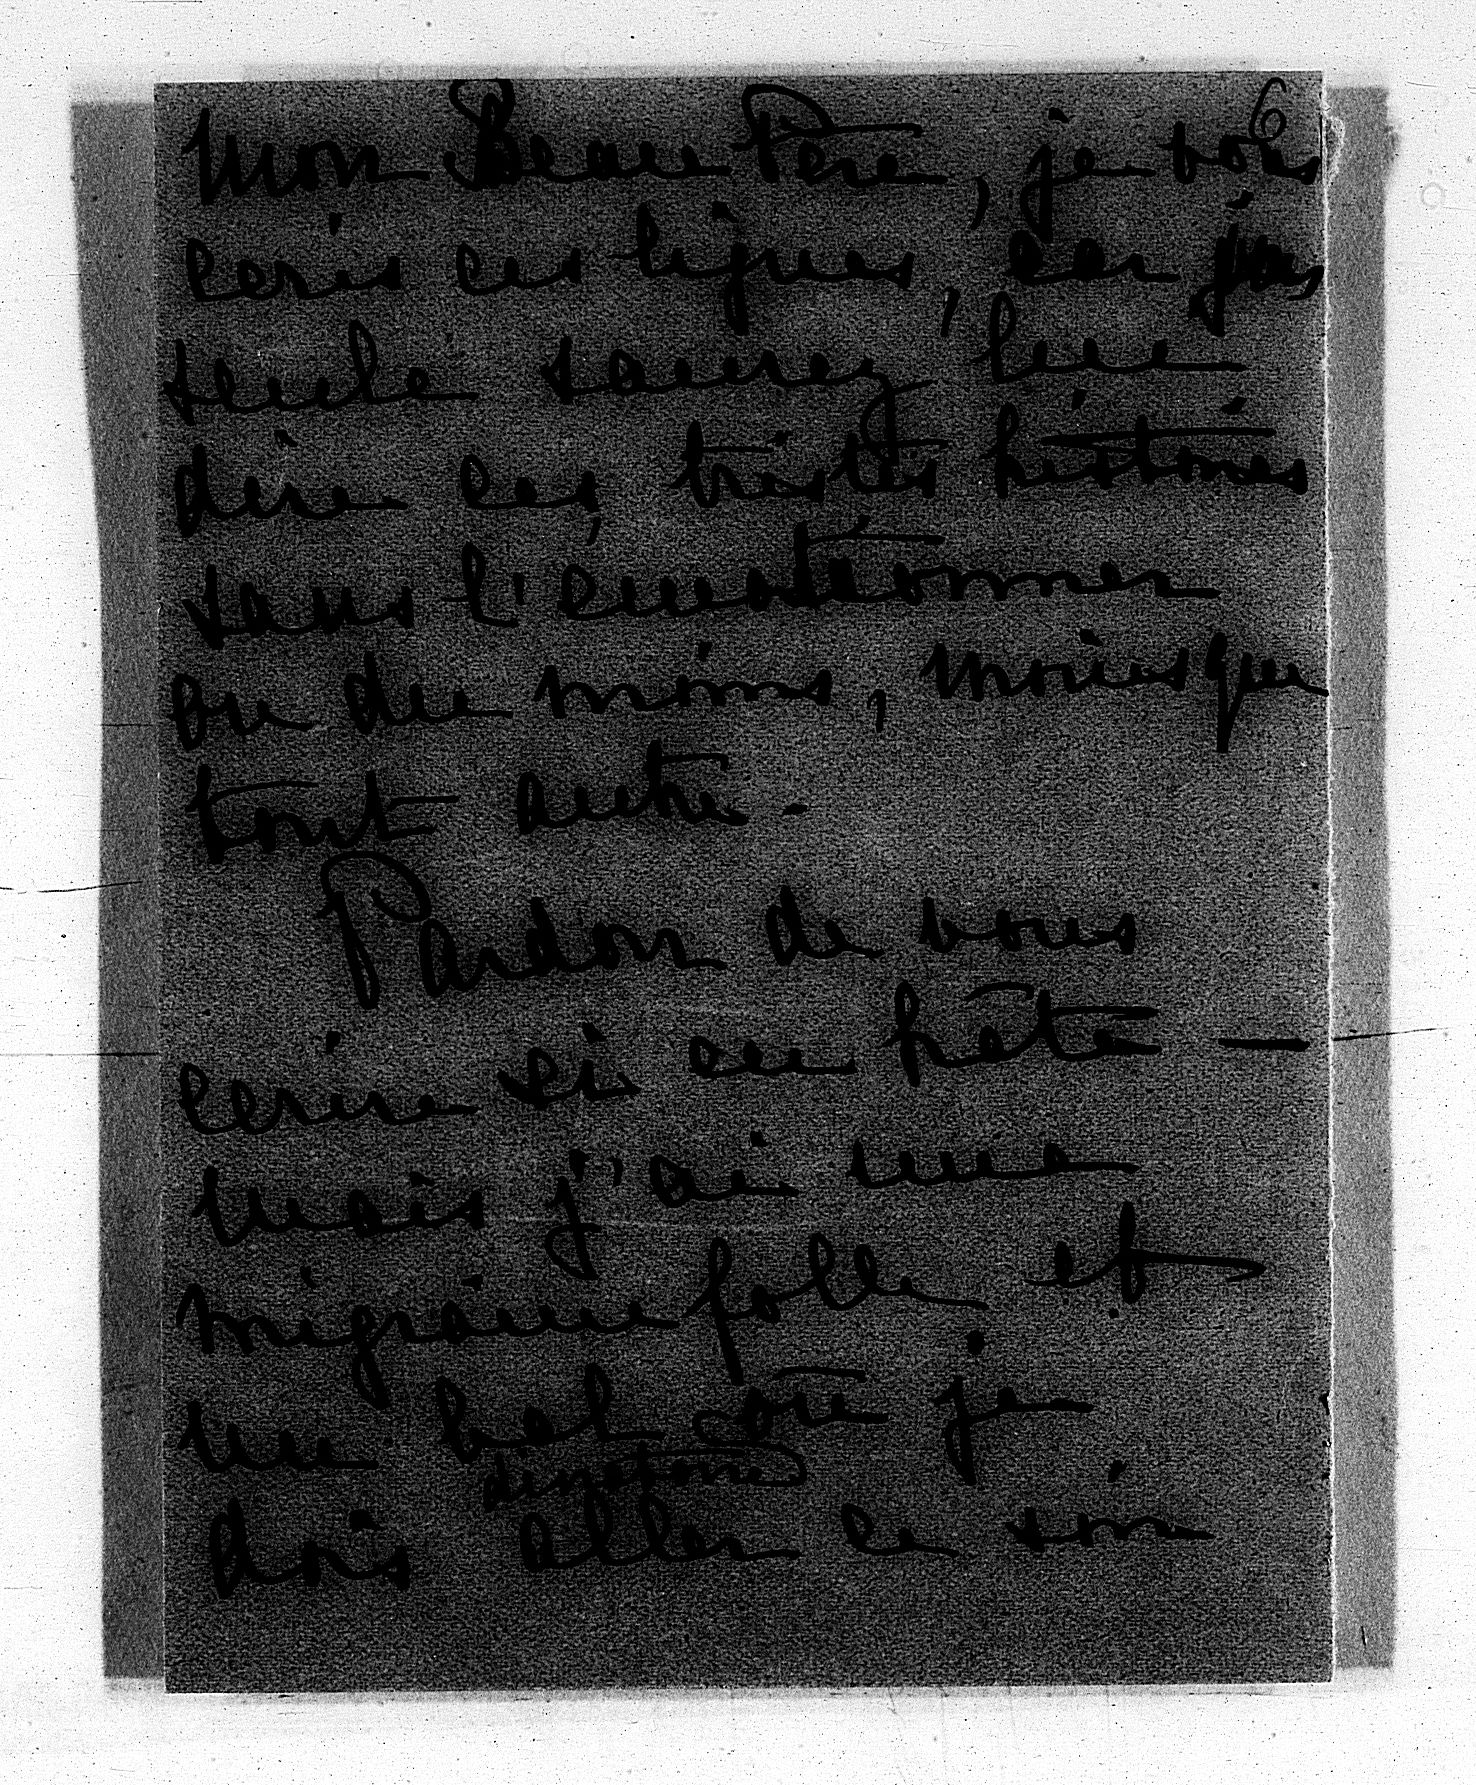 6
Mon Beau Père, je vous
écris ces lignes, car
seule saurez lui
dire ces tristes histoires
sans l'émotionner
ou du moins, moins que
tout autre.
Pardon de vous
écrire si en hâte —
mais j'ai une
migraine folle et
un bal où je
dois aller ce soir